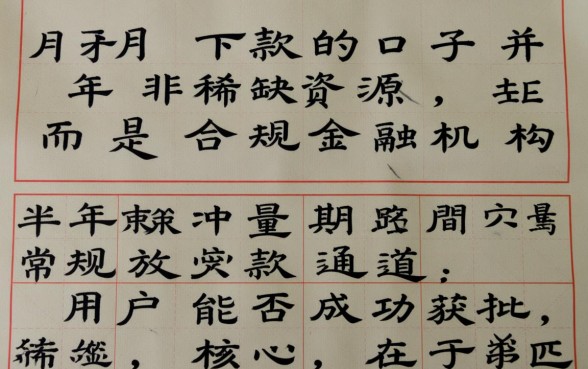 月 下款的口子并
年 非稀缺資源，
而是合规金融机构
半年 冲量期 間穴
常规放 款通道；
用户能否成功获批，
核心，在于 匹